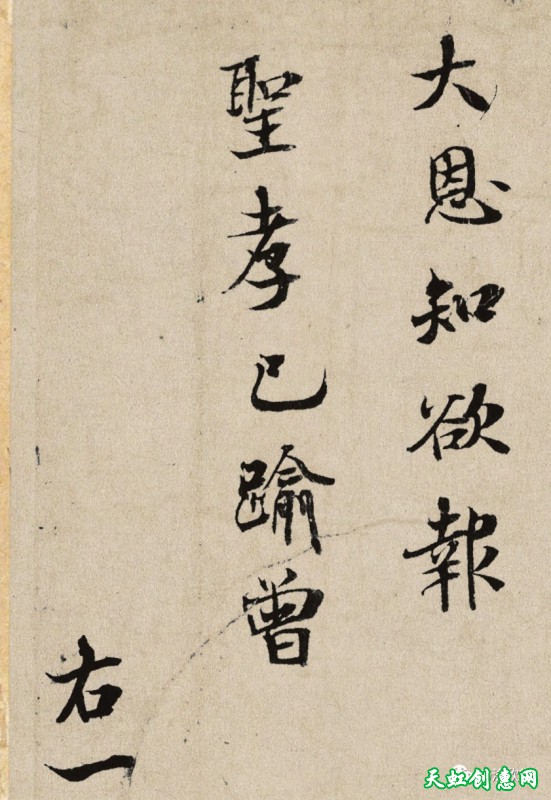 大恩知欲報
聖孝已踰曾
右一
天虹创惠网